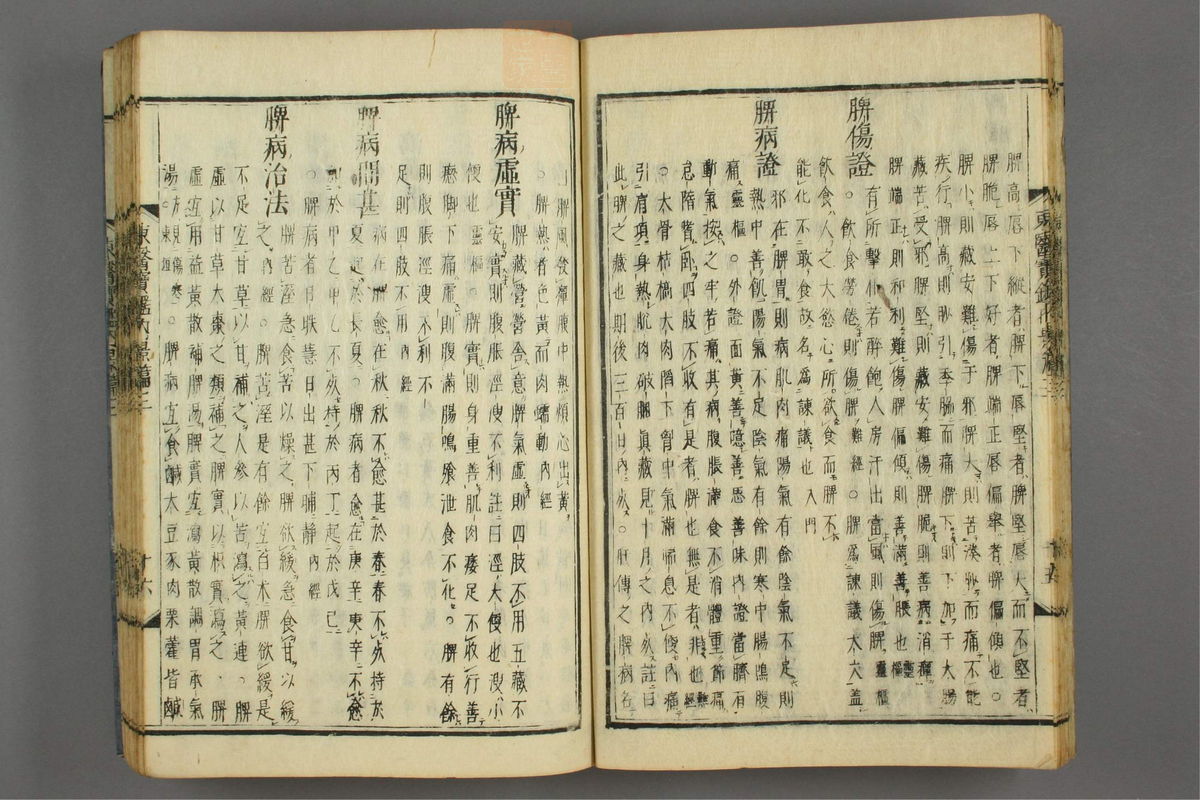 脾高脣下縱者脾下脣堅者脾堅脣大而不堅者
脾脆脣上下好者脾端正脣偏擧者脾偏傾也○
脾小則藏安難傷于邪脾大則苦湊䏚而痛不能
疾行脾高則䏚引季脇而痛脾下則下加于大腸
藏苦受邪脾堅則藏安難傷脾脆則善病消癉
脾端正則和利難傷脾偏傾則善滿善脹也靈樞
脾傷證 有所擊仆若醉飽入房汗出當風則傷脾靈樞
○飮食勞倦則傷脾難經○脾爲諫議大夫盖
飮食人之大慾心所欲食而脾不
能化不敢食故名爲諫議也入門
脾病證 邪在脾胃則病肌肉痛陽氣有餘陰氣不足則
熱中善飢陽氣不足陰氣有餘則寒中腸鳴腹
痛靈樞○外證面黃善噫善思善味內證當臍有
動氣按之牢若痛其病腹脹滿食不消體重節痛
怠惰嗜臥四肢不收有是者脾也無是者非也難經
○大骨枯槁大肉陷下胷中氣滿喘息不便內痛
引肩項身熱肌肉破䐃眞藏見十月之內死註曰
此脾之藏也期後三百日內死○肝傳之脾病名
曰脾風發癉腹中熱煩心出黃
○脾熱者色黃而肉蠕動內經
脾病虛實 脾藏營營舍意脾氣虛則四肢不用五藏不
安實則腹脹涇溲不利註曰涇大便也溲小
便也靈樞○脾實則身重善肌肉痿足不收行善
瘛脚下痛虛則腹滿腸鳴飱泄食不化○脾有餘
則腹脹涇溲不利不
足則四肢不用內經
脾病間甚 病在脾愈在秋秋不愈甚於春春不死持於
夏起於長夏○脾病者愈在庚辛庚辛不愈
加於甲乙甲乙不死持於丙丁起於戊己
○脾病者日昳慧日出甚下晡靜內經
脾病治法 脾苦溼急食苦以燥之脾欲緩急食甘以緩
之內經○脾苦溼是有餘宜白朮脾欲緩是
不足宜甘草以甘補之人參以苦瀉之黃連○脾
虛以甘草大棗之類補之脾實以枳實瀉之○脾
虛宜用益黃散補脾湯脾實宜瀉黃散調胃承氣
湯方見傷寒東垣○脾病宜食鹹大豆豕肉栗藿皆鹹
東醫寶鑑內景篇三
十五
東醫寶鑑內景篇三
十六